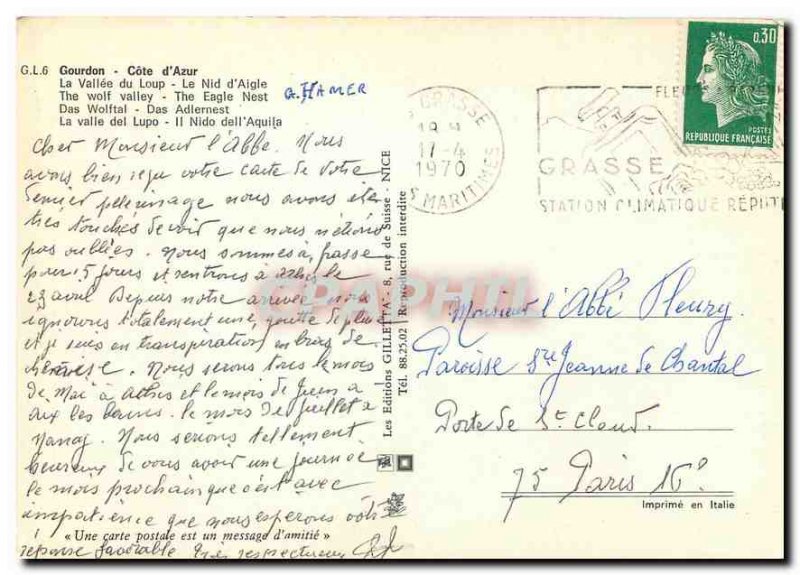 G.L.6 Gourdon - Côte d'Azur
La Vallée du Loup - Le Nid d'Aigle
The wolf valley - The Eagle Nest
Das Wolftal - Das Adlernest
La valle del Lupo - Il Nido dell'Aquila
G. HAMER
Cher Monsieur l'Abbé. Nous
avons bien reçu votre carte de votre
dernier pélerinage nous avons été
très touchés de voir que nous n'étions
pas oubliés. Nous sommes à Grasse
pour 15 jours et rentrons à Athis le
23 avril Depuis notre arrivée nous
ignorons totalement une goutte de pluie
et je suis en transpiration en bras de
chemise. Nous serons tous le mois
de Mai à Athis et le mois de Juin à
Aix les bains. le mois de Juillet à
Nous serions tellement
heureux de vous avoir une journée
le mois prochain que c'est avec
impatience que nous esperons votre
« Une carte postale est un message d'amitié »
réponse favorable très respectueux
Les Editions GILLETTA - 8, rue de Suisse - NICE
Tél. 88.25.02 Reproduction interdite
GRASSE
17-4
1970
S MARITIMES
GRASSE
STATION CLIMATIQUE RÉPUT
0,30
POSTES
REPUBLIQUE FRANÇAISE
CPAPHIL
Monsieur l'Abbé Fleury.
Paroisse Ste Jeanne de Chantal
Porte de St Cloud.
75 Paris 16°
Imprimé en Italie